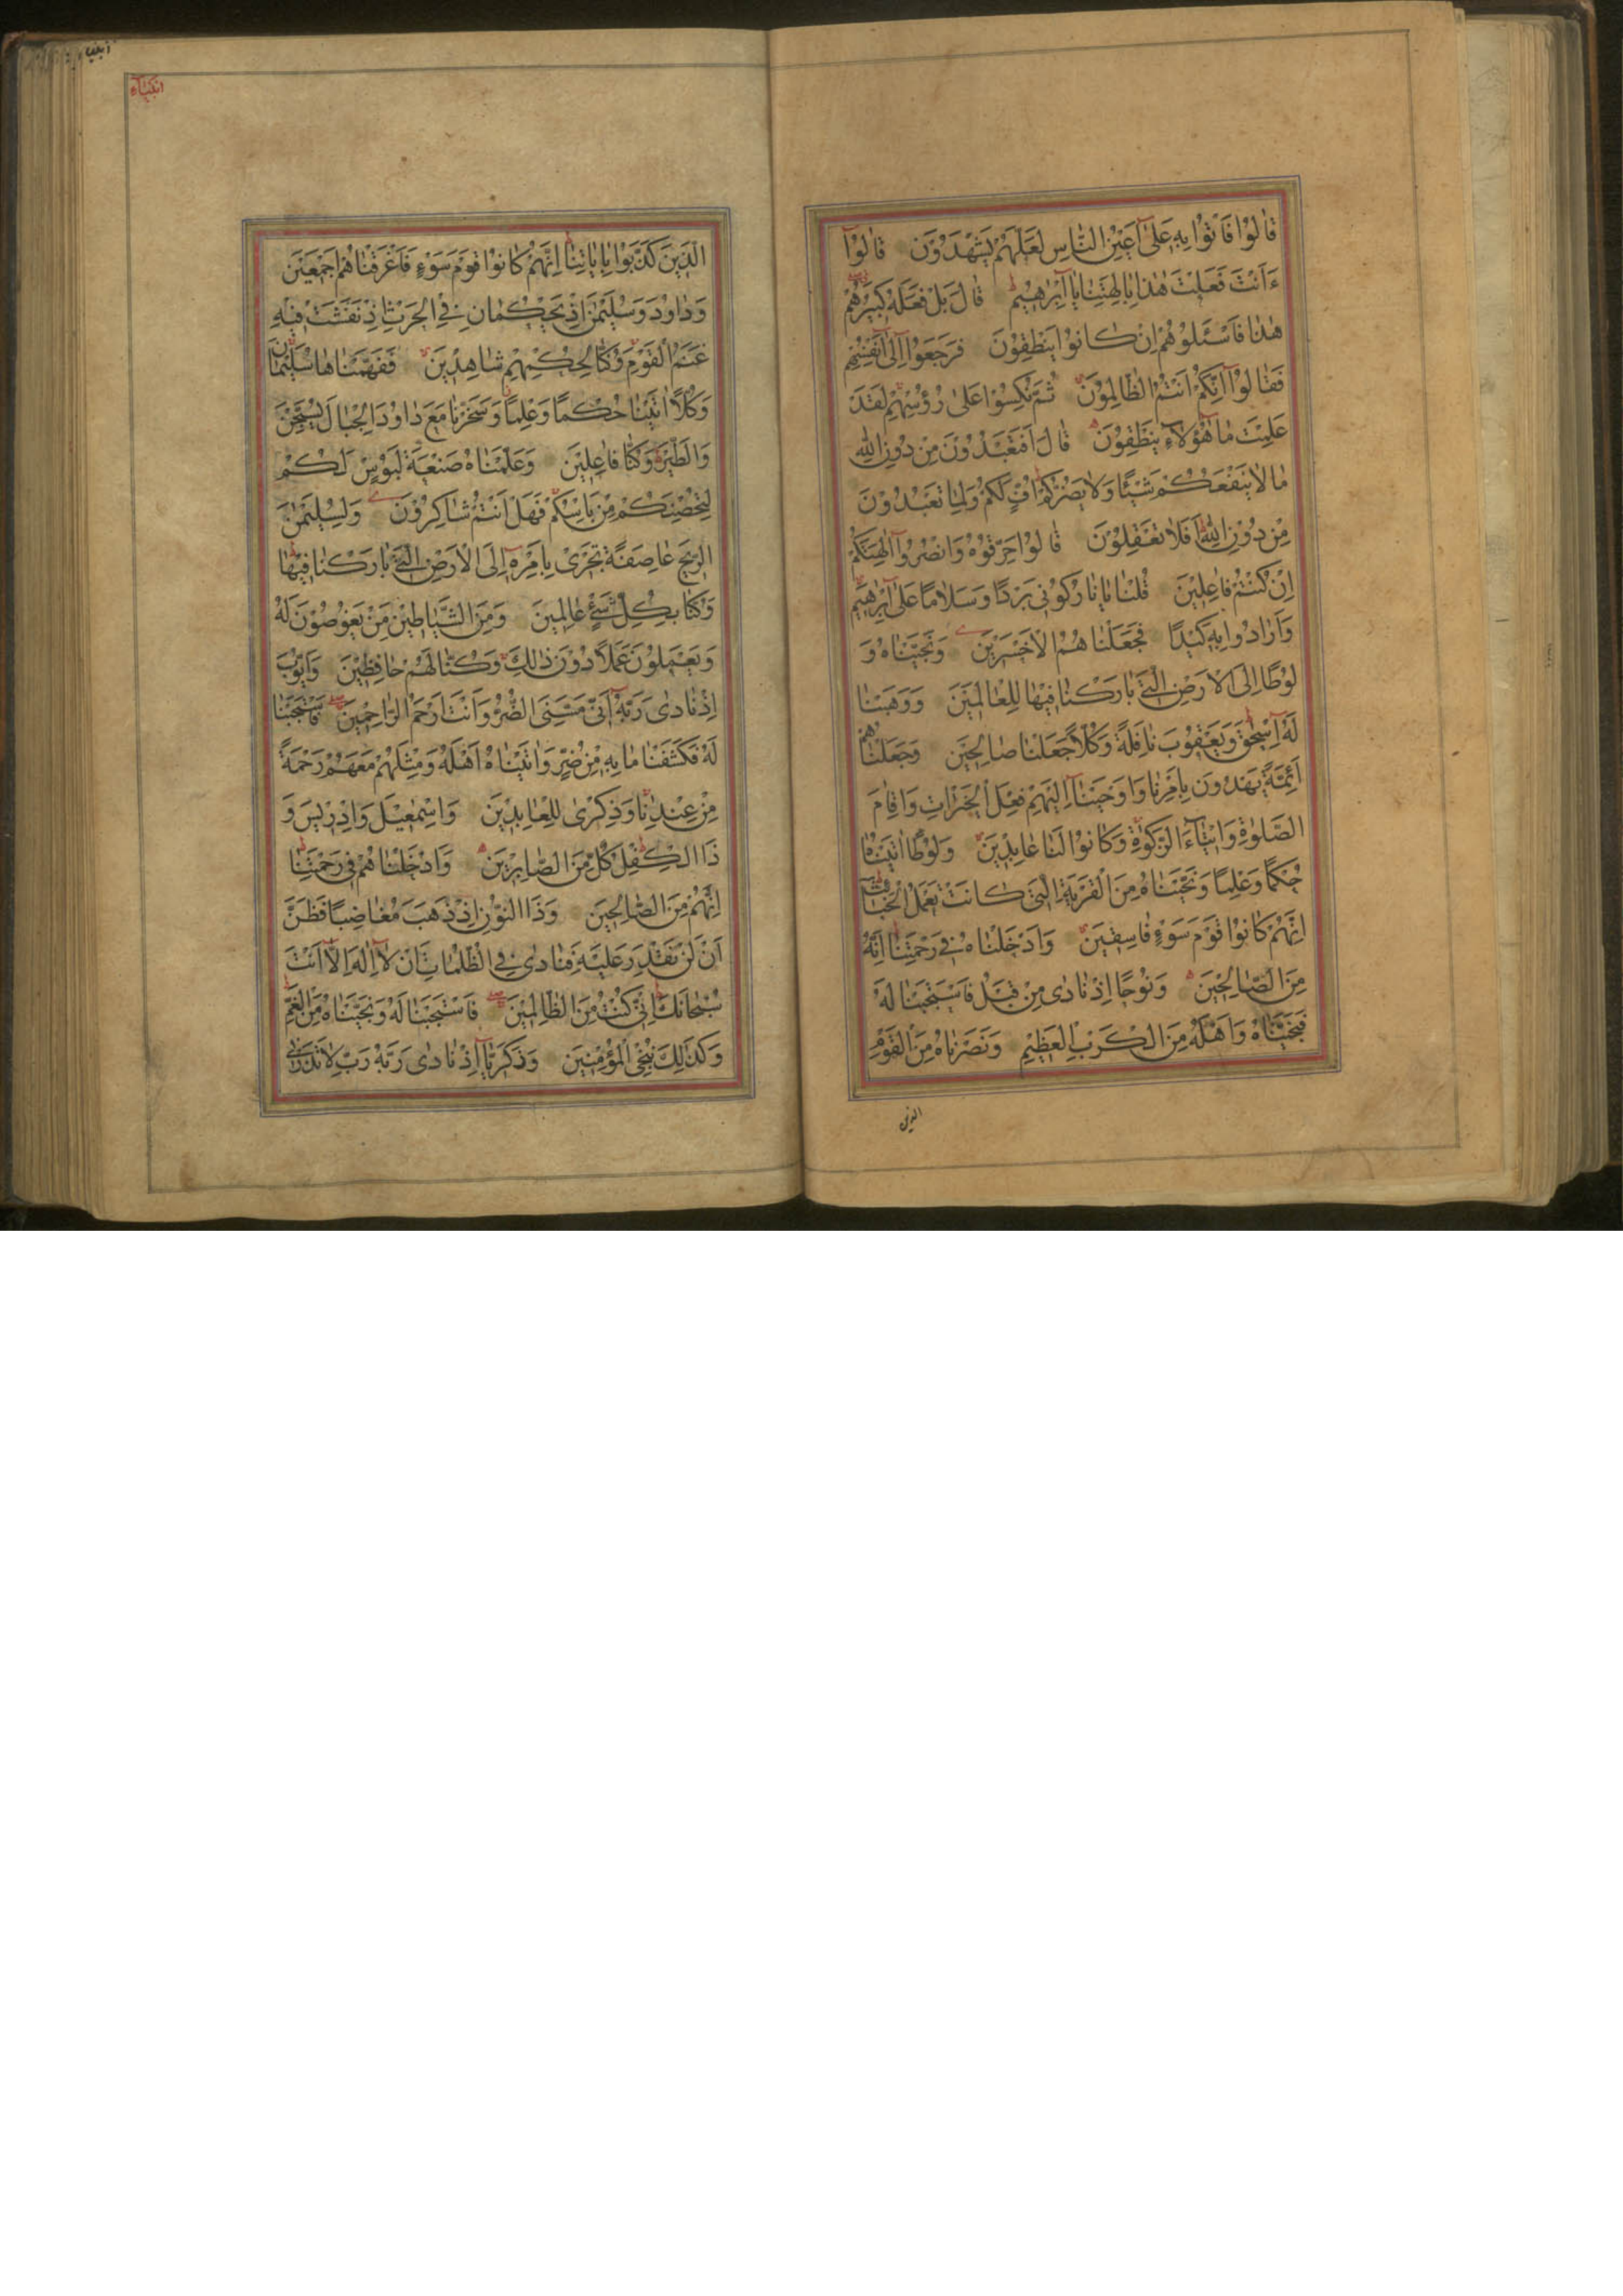 قَالُوا فَأْتُوا بِهِ عَلَىٰ أَعْيُنِ النَّاسِ لَعَلَّهُمْ يَشْهَدُونَ قَالُوا
ءَاَنْتَ فَعَلْتَ هٰذَا بِاٰلِهَتِنَا يَا اِبْرٰهِيمُ قَالَ بَلْ فَعَلَهُ كَبِيرُهُمْ
هٰذَا فَاسْئَلُوهُمْ اِنْ كَانُوا يَنْطِقُونَ فَرَجَعُوا اِلَىٰ اَنْفُسِهِمْ
فَقَالُوا اِنَّكُمْ اَنْتُمُ الظَّالِمُونَ ثُمَّ نُكِسُوا عَلَىٰ رُؤُسِهِمْ لَقَدْ
عَلِمْتَ مَا هٰؤُلَاءِ يَنْطِقُونَ قَالَ اَفَتَعْبُدُونَ مِنْ دُونِ اللهِ
مَا لَا يَنْفَعُكُمْ شَيْئًا وَلَا يَضُرُّكُمْ اُفٍّ لَكُمْ وَلِمَا تَعْبُدُونَ
مِنْ دُونِ اللهِ اَفَلَا تَعْقِلُونَ قَالُوا حَرِّقُوهُ وَانْصُرُوا اٰلِهَتَكُمْ
اِنْ كُنْتُمْ فَاعِلِينَ قُلْنَا يَا نَارُ كُونِي بَرْدًا وَسَلَامًا عَلَىٰ اِبْرٰهِيمَ
وَاَرَادُوا بِهِ كَيْدًا فَجَعَلْنَاهُمُ الْاَخْسَرِينَ وَنَجَّيْنَاهُ وَ
لُوطًا اِلَى الْاَرْضِ الَّتِي بَارَكْنَا فِيهَا لِلْعَالَمِينَ وَوَهَبْنَا
لَهُ اِسْحٰقَ وَيَعْقُوبَ نَافِلَةً وَكُلًّا جَعَلْنَا صَالِحِينَ وَجَعَلْنَاهُمْ
اَئِمَّةً يَهْدُونَ بِاَمْرِنَا وَاَوْحَيْنَا اِلَيْهِمْ فِعْلَ الْخَيْرَاتِ وَاِقَامَ
الصَّلٰوةِ وَاِيتَاءَ الزَّكٰوةِ وَكَانُوا لَنَا عَابِدِينَ وَلُوطًا اٰتَيْنَاهُ
حُكْمًا وَعِلْمًا وَنَجَّيْنَاهُ مِنَ الْقَرْيَةِ الَّتِي كَانَتْ تَعْمَلُ الْخَبَائِثَ
اِنَّهُمْ كَانُوا قَوْمَ سَوْءٍ فَاسِقِينَ وَاَدْخَلْنَاهُ فِي رَحْمَتِنَا اِنَّهُ
مِنَ الصَّالِحِينَ وَنُوحًا اِذْ نَادَىٰ مِنْ قَبْلُ فَاسْتَجَبْنَا لَهُ
فَنَجَّيْنَاهُ وَاَهْلَهُ مِنَ الْكَرْبِ الْعَظِيمِ وَنَصَرْنَاهُ مِنَ الْقَوْمِ
الذين
انبیاء
انبیاء
الَّذِينَ كَذَّبُوا بِاٰيَاتِنَا اِنَّهُمْ كَانُوا قَوْمَ سَوْءٍ فَاَغْرَقْنَاهُمْ اَجْمَعِينَ
وَدَاوُدَ وَسُلَيْمٰنَ اِذْ يَحْكُمَانِ فِي الْحَرْثِ اِذْ نَفَشَتْ فِيهِ
غَنَمُ الْقَوْمِ وَكُنَّا لِحُكْمِهِمْ شَاهِدِينَ فَفَهَّمْنَاهَا سُلَيْمَانَ
وَكُلًّا اٰتَيْنَا حُكْمًا وَعِلْمًا وَسَخَّرْنَا مَعَ دَاوُدَ الْجِبَالَ يُسَبِّحْنَ
وَالطَّيْرَ وَكُنَّا فَاعِلِينَ وَعَلَّمْنَاهُ صَنْعَةَ لَبُوسٍ لَكُمْ
لِتُحْصِنَكُمْ مِنْ بَاْسِكُمْ فَهَلْ اَنْتُمْ شَاكِرُونَ وَلِسُلَيْمٰنَ
الرِّيحَ عَاصِفَةً تَجْرِي بِاَمْرِهِ اِلَى الْاَرْضِ الَّتِي بَارَكْنَا فِيهَا
وَكُنَّا بِكُلِّ شَيْءٍ عَالِمِينَ وَمِنَ الشَّيَاطِينِ مَنْ يَغُوصُونَ لَهُ
وَيَعْمَلُونَ عَمَلًا دُونَ ذٰلِكَ وَكُنَّا لَهُمْ حَافِظِينَ وَاَيُّوبَ
اِذْ نَادَىٰ رَبَّهُ اَنِّي مَسَّنِيَ الضُّرُّ وَاَنْتَ اَرْحَمُ الرَّاحِمِينَ فَاسْتَجَبْنَا
لَهُ فَكَشَفْنَا مَا بِهِ مِنْ ضُرٍّ وَاٰتَيْنَاهُ اَهْلَهُ وَمِثْلَهُمْ مَعَهُمْ رَحْمَةً
مِنْ عِنْدِنَا وَذِكْرَىٰ لِلْعَابِدِينَ وَاِسْمٰعِيلَ وَاِدْرِيسَ وَ
ذَا الْكِفْلِ كُلٌّ مِنَ الصَّابِرِينَ وَاَدْخَلْنَاهُمْ فِي رَحْمَتِنَا
اِنَّهُمْ مِنَ الصَّالِحِينَ وَذَا النُّونِ اِذْ ذَهَبَ مُغَاضِبًا فَظَنَّ
اَنْ لَنْ نَقْدِرَ عَلَيْهِ فَنَادَىٰ فِي الظُّلُمَاتِ اَنْ لَا اِلٰهَ اِلَّا اَنْتَ
سُبْحَانَكَ اِنِّي كُنْتُ مِنَ الظَّالِمِينَ فَاسْتَجَبْنَا لَهُ وَنَجَّيْنَاهُ مِنَ الْغَمِّ
وَكَذٰلِكَ نُنْجِي الْمُؤْمِنِينَ وَزَكَرِيَّا اِذْ نَادَىٰ رَبَّهُ رَبِّ لَا تَذَرْنِي